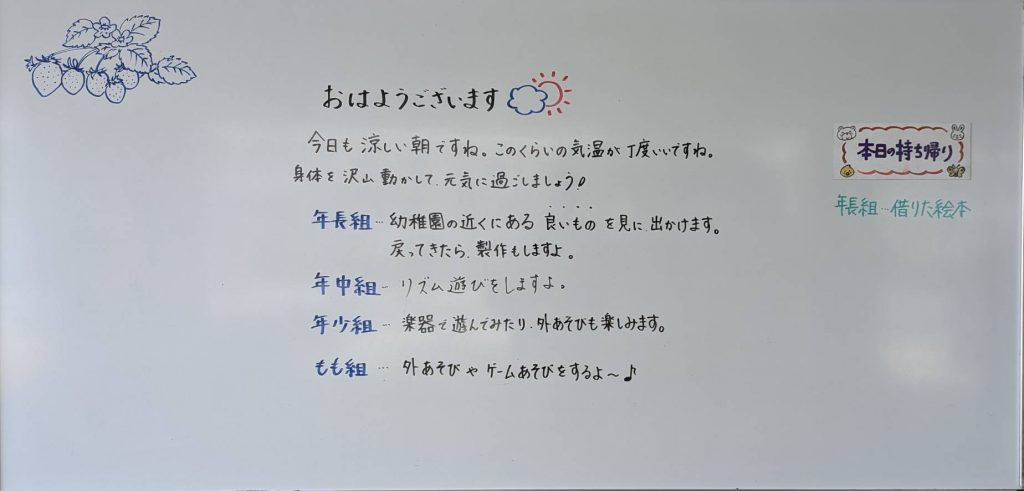 おはようございます
今日も涼しい朝ですね。このくらいの気温が丁度いいですね。
身体を沢山動かして、元気に過ごしましょう♪
年長組…幼稚園の近くにある良いものを見に、出かけます。
戻ってきたら、製作もしますよ。
年中組…リズム遊びをしますよ。
年少組…楽器で遊んでみたり、外あそびも楽しみます。
もも組…外あそびやゲームあそびをするよ〜♪
本日の持ち帰り
年長組…借りた絵本